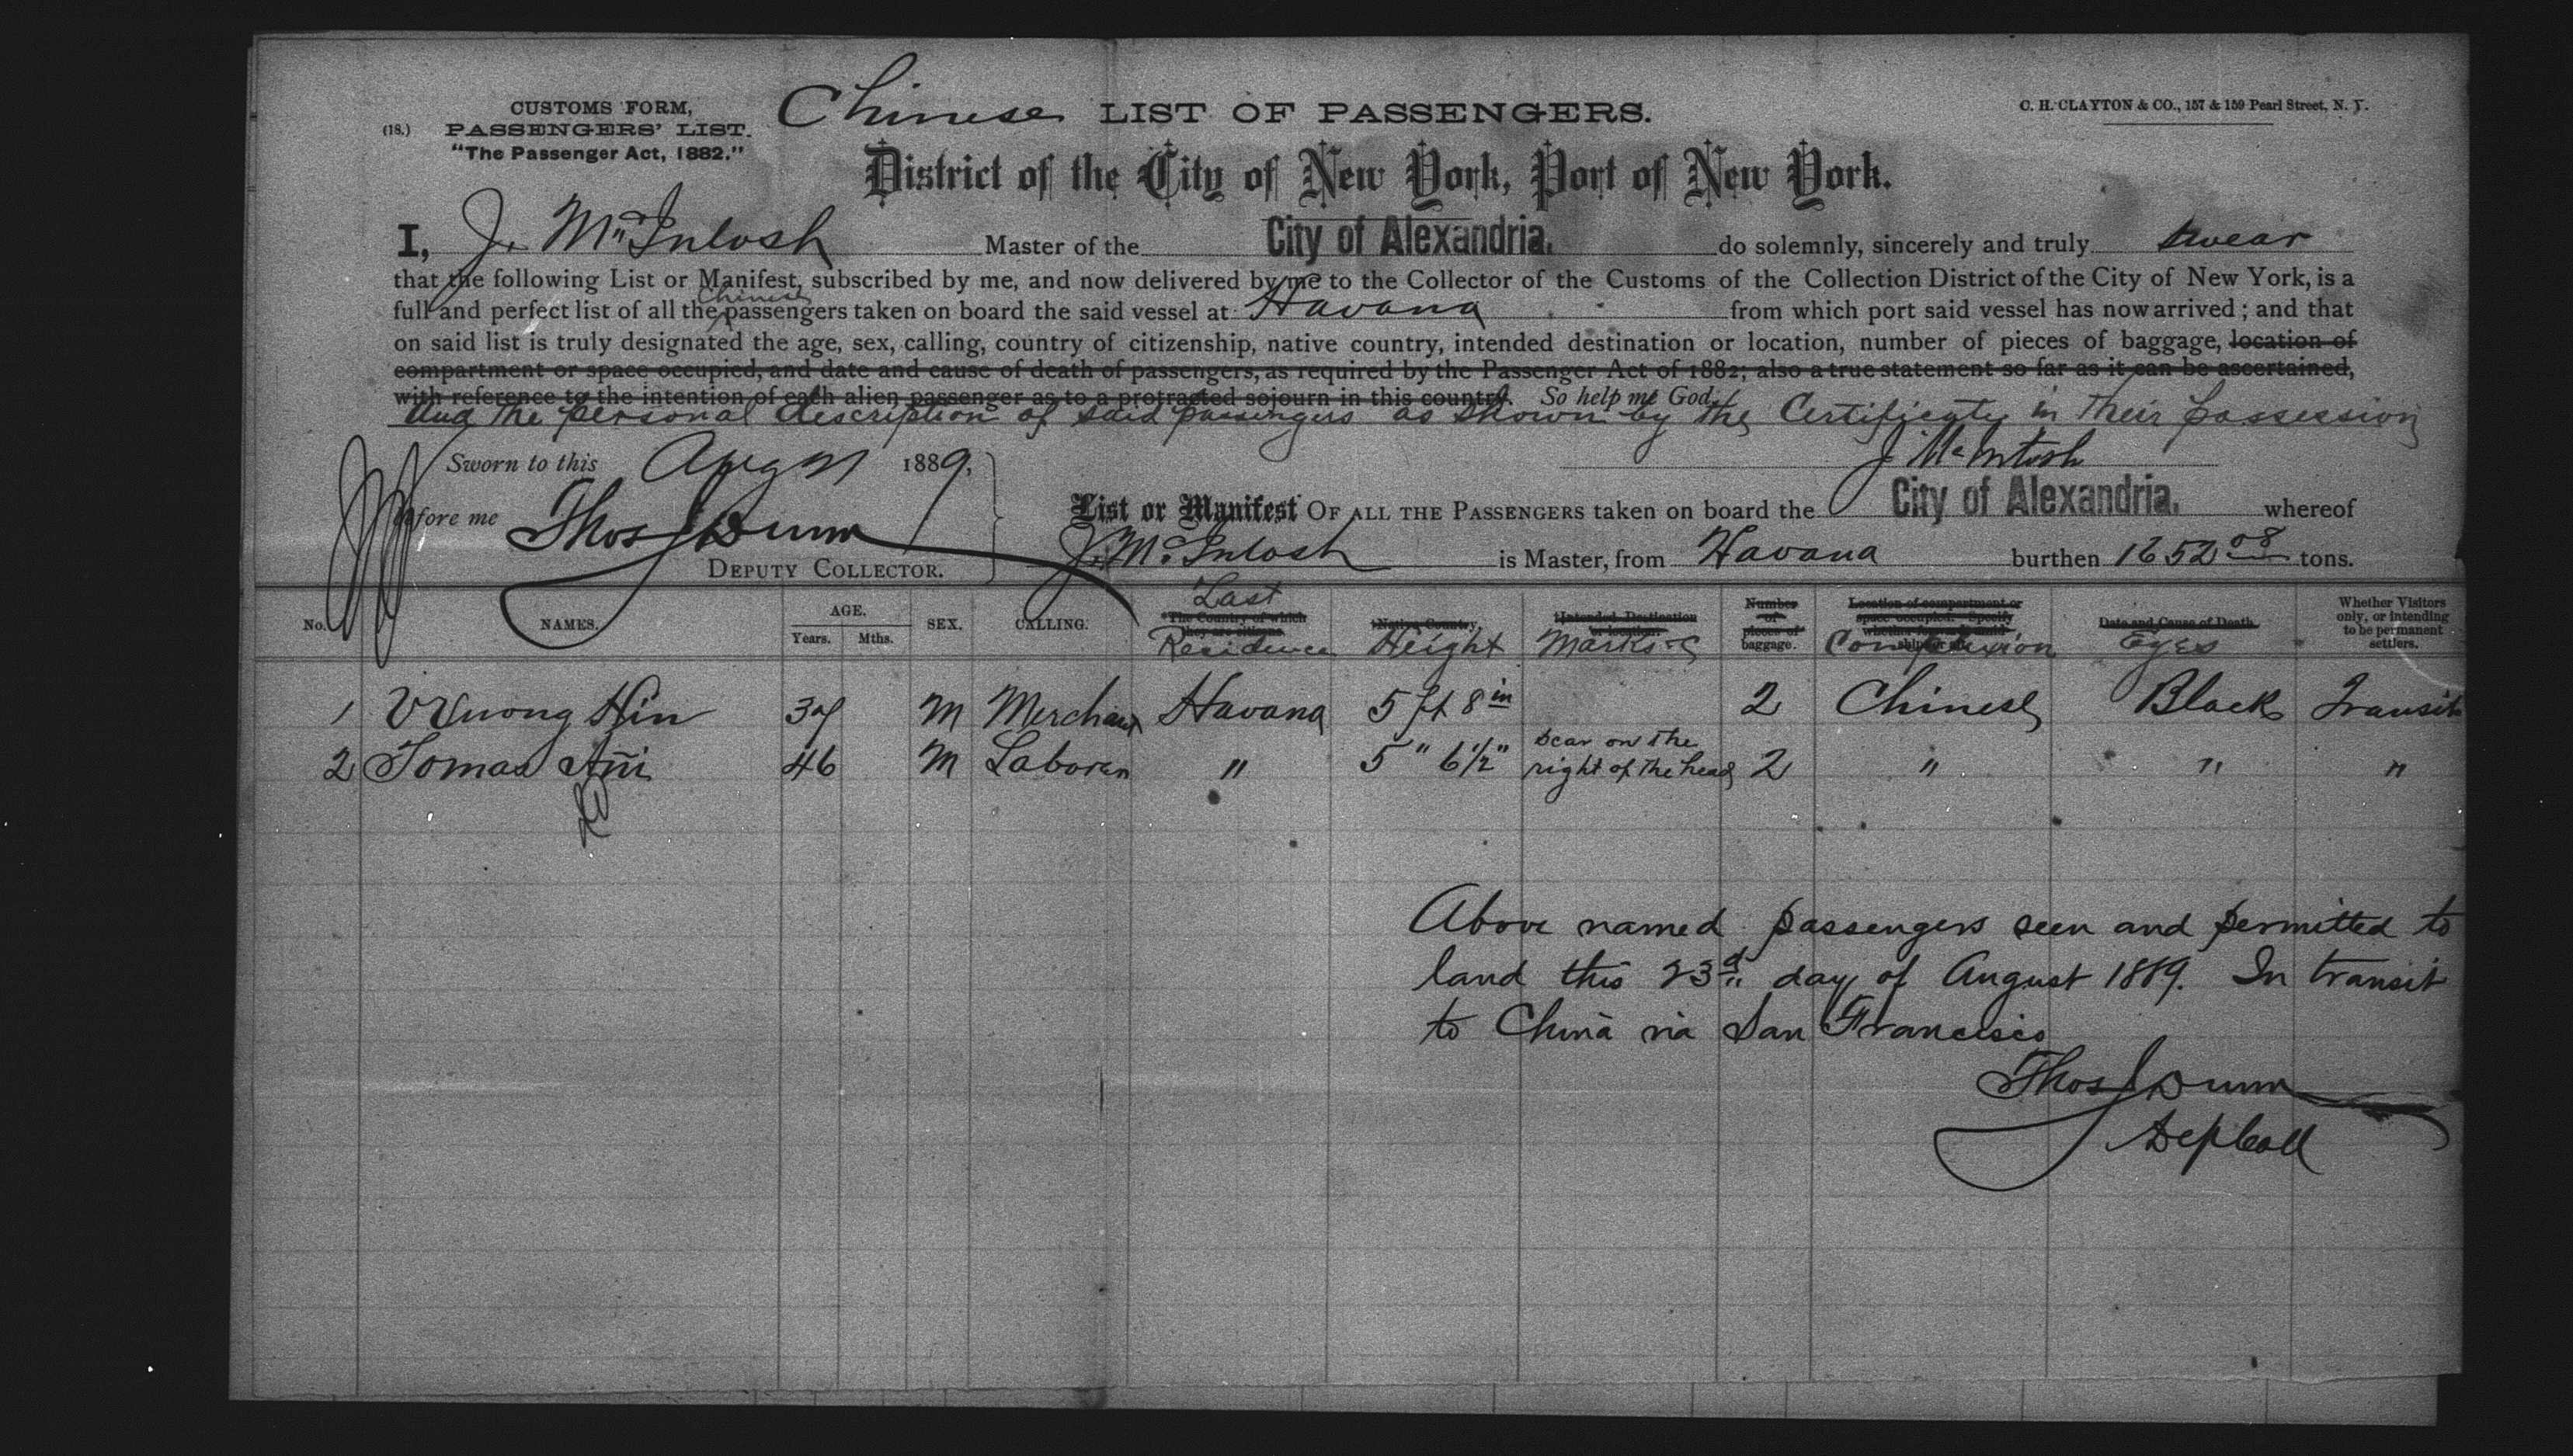 CUSTOMS FORM,
(18.) PASSENGERS' LIST.
"The Passenger Act, 1882."
Chinese LIST OF PASSENGERS.
C. H. CLAYTON & CO., 157 & 159 Pearl Street, N. Y.
District of the City of New York, Port of New York.
I, J. McIntosh Master of the City of Alexandria. do solemnly, sincerely and truly swear
that the following List or Manifest, subscribed by me, and now delivered by me to the Collector of the Customs of the Collection District of the City of New York, is a
Chinese
full and perfect list of all the passengers taken on board the said vessel at Havana from which port said vessel has now arrived; and that
on said list is truly designated the age, sex, calling, country of citizenship, native country, intended destination or location, number of pieces of baggage, location of
compartment or space occupied, and date and cause of death of passengers, as required by the Passenger Act of 1882; also a true statement so far as it can be ascertained,
with reference to the intention of each alien passenger as to a protracted sojourn in this country. So help me God.
and the personal description of said passengers as shown by the Certificate in their possession
J McIntosh
Sworn to this Aug 1889.
before me Thos J Dunn
DEPUTY COLLECTOR.
List or Manifest OF ALL THE PASSENGERS taken on board the City of Alexandria. whereof
J. McIntosh is Master, from Havana burthen 1652 08 tons.
No. NAMES. AGE. Years. Mths. SEX. CALLING. Last The Country of which they are citizens. Residence Native Country. Height Intended Destination or location. Marks &c Number of pieces of baggage. Location of compartment or space occupied. Specify Complexion Date and Cause of Death. Eyes Whether Visitors only, or intending to be permanent settlers.
1 Hin M Merchant Havana 5 ft 8 in 2 Chinese Black Transit
2 Tomas 46 M Laborer " 5 " 6½" scar on the right of the head 2 " " "
Above named passengers seen and permitted to
land this 23d day of August 1889. In transit
to China via San Francisco
Thos J Dunn
Dep Coll